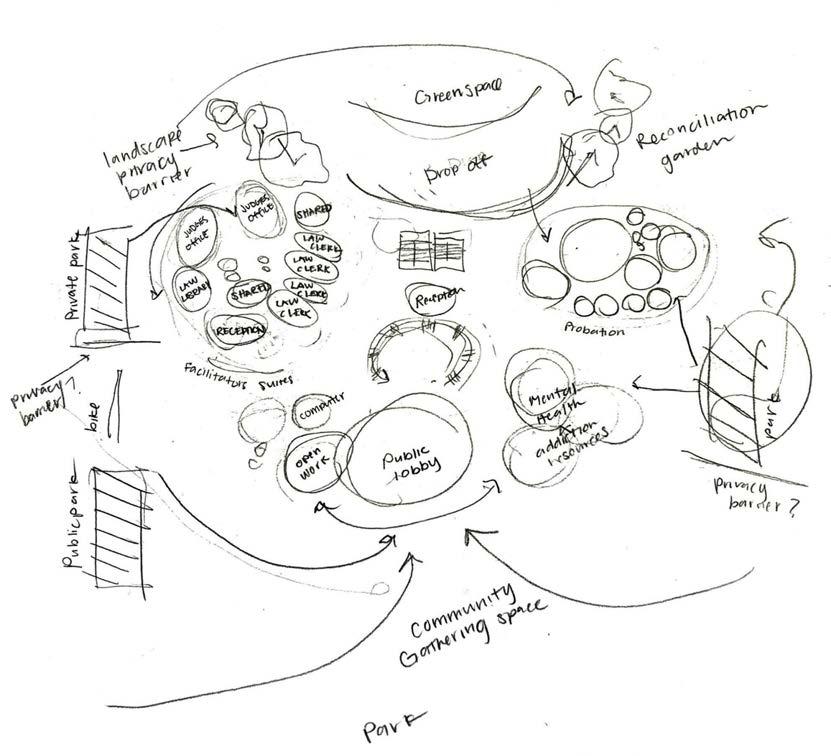 Greenspace
Drop off
Reconciliation
garden
landscape
privacy
barrier
JUDGES
OFFICE
JUDGES
OFFICE
SHARED
LAW
CLERK
LAW
CLERK
LAW
CLERK
LAW
CLERK
LAW
LIBRARY
SHARED
RECEPTION
Facilitators Suites
Private park
privacy
barrier?
bike
Public park
Reception
Probation
computer
open
work
Public
lobby
Mental
Health
addiction
resources
park
privacy
barrier?
Community
Gathering space
Park